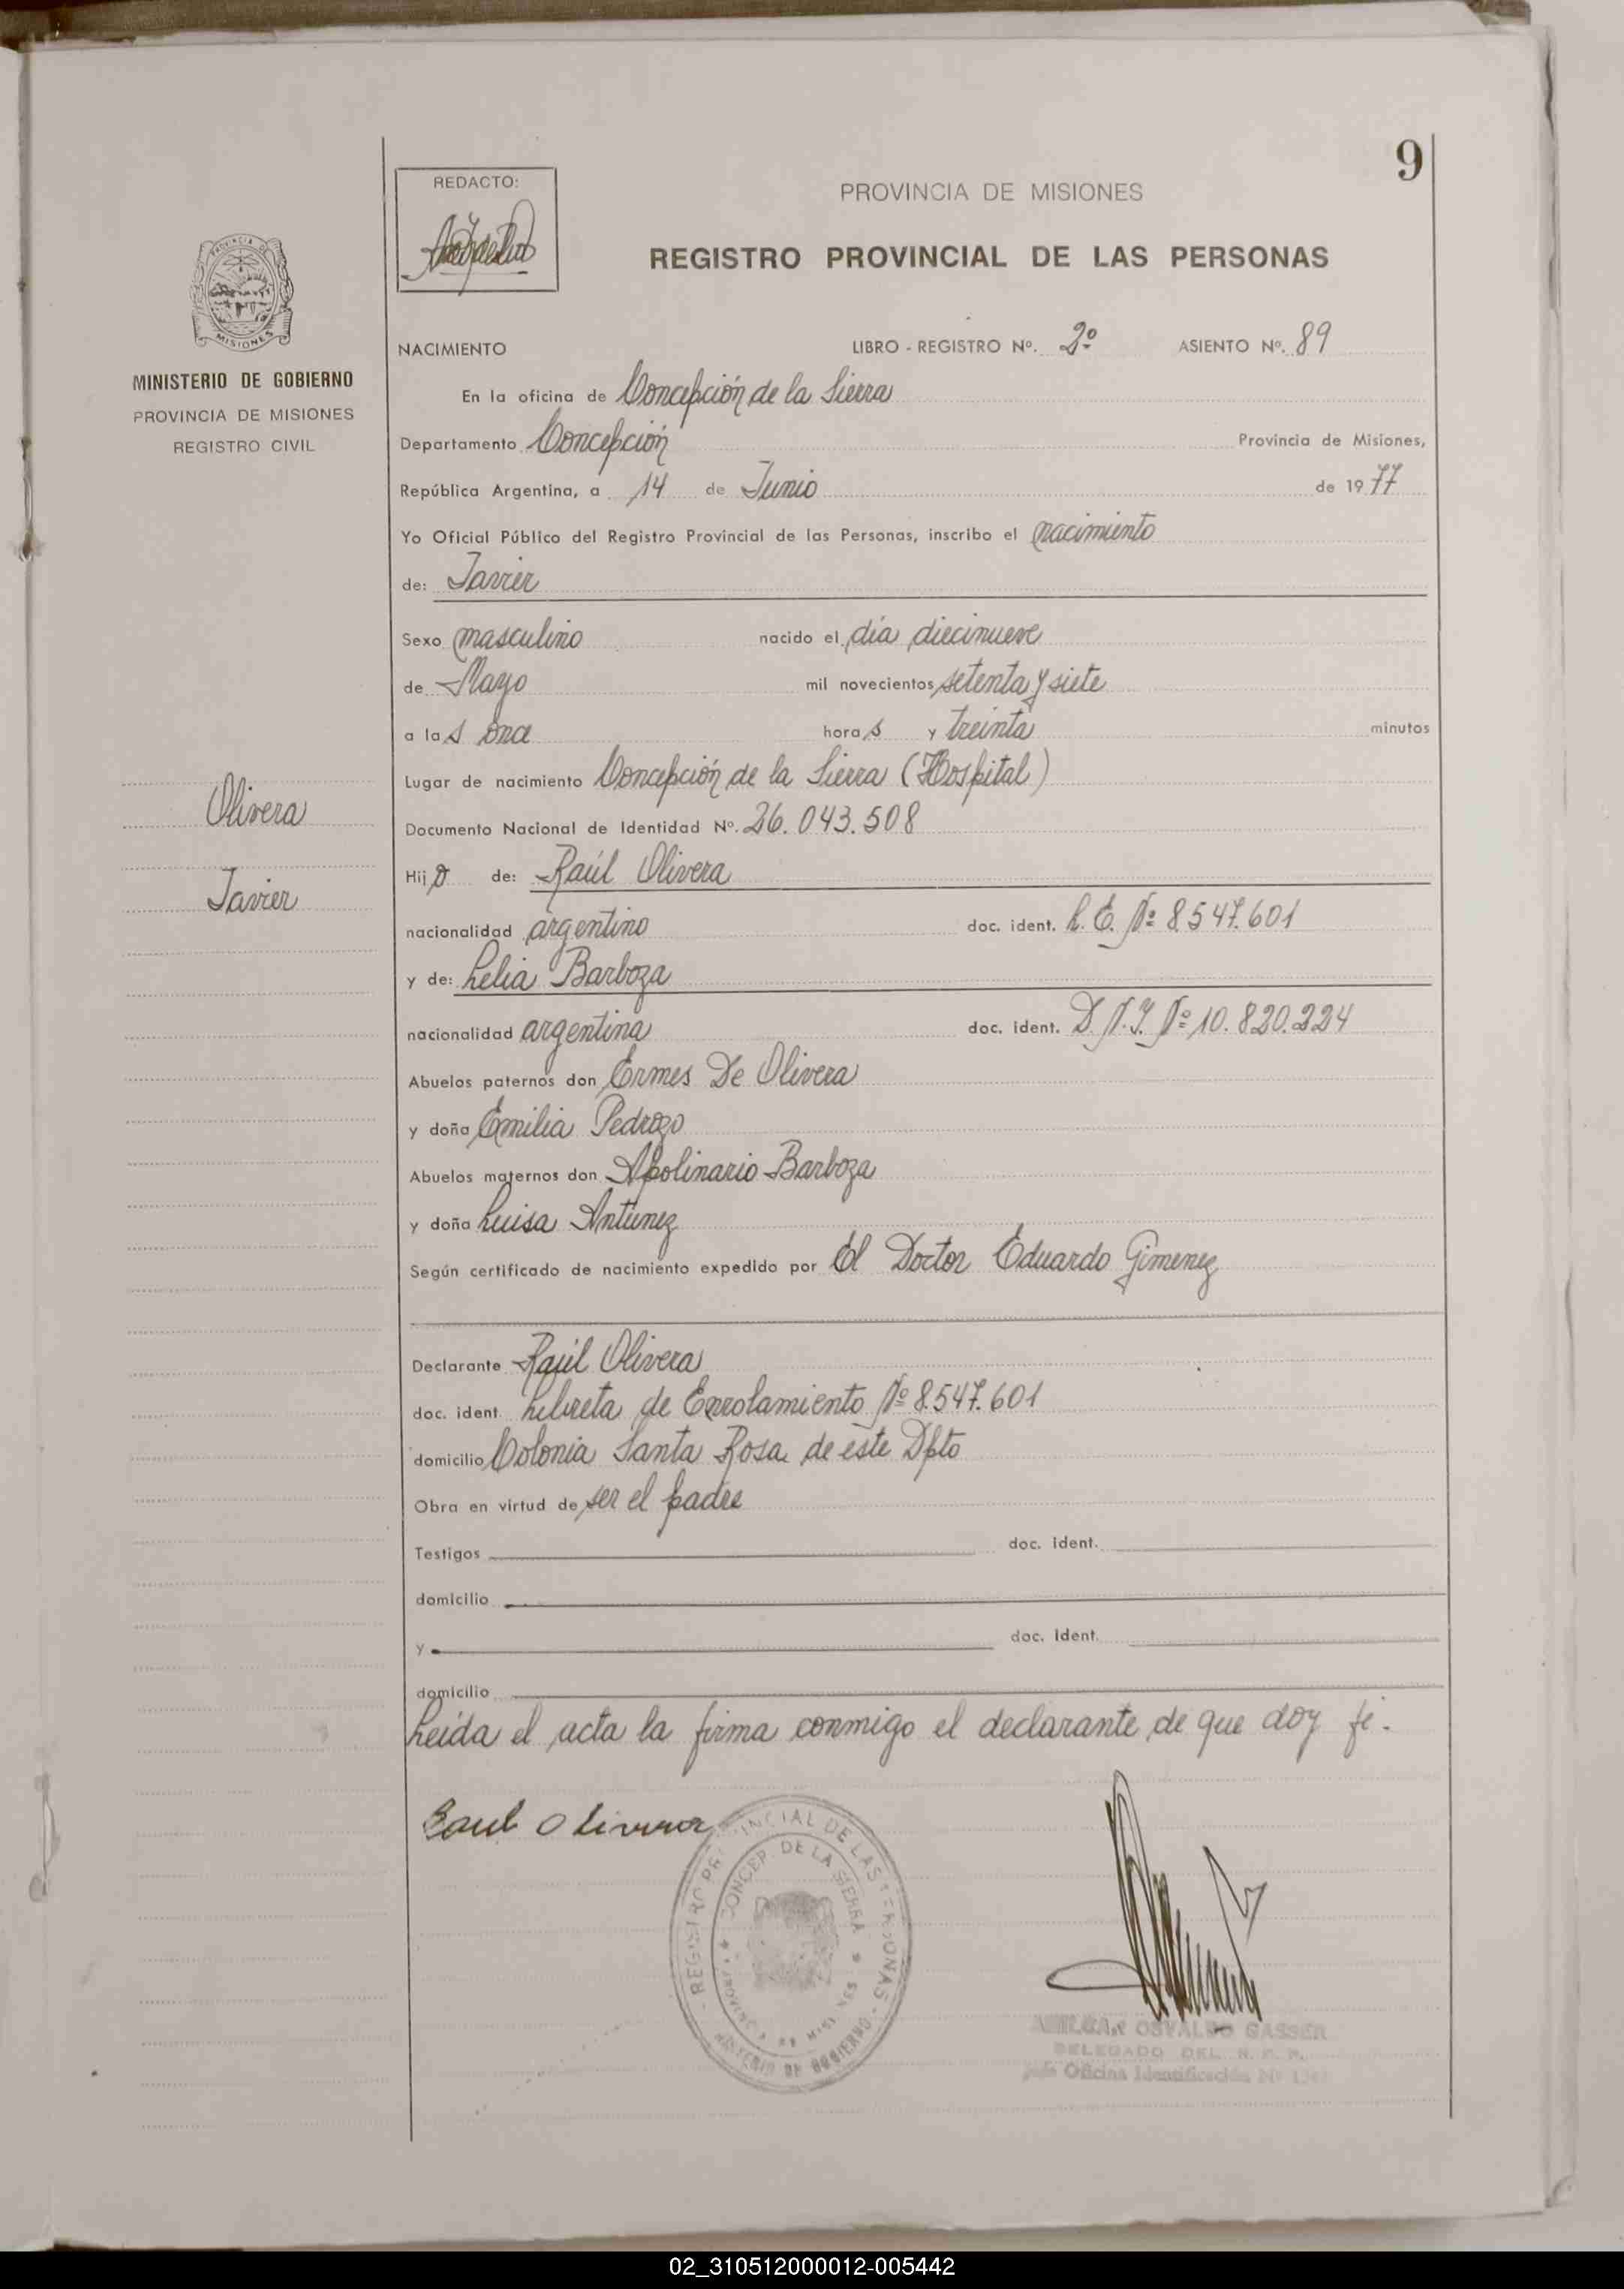 9
REDACTO:
PROVINCIA DE MISIONES
REGISTRO PROVINCIAL DE LAS PERSONAS
PROVINCIA DE
MISIONES
MINISTERIO DE GOBIERNO
PROVINCIA DE MISIONES
REGISTRO CIVIL
NACIMIENTO LIBRO - REGISTRO Nº. 2º ASIENTO Nº. 89
En la oficina de Concepción de la Sierra
Departamento Concepción Provincia de Misiones,
República Argentina, a 14 de Junio de 1977
Yo Oficial Público del Registro Provincial de las Personas, inscribo el nacimiento
de: Javier
Sexo masculino nacido el día diecinueve
de Mayo mil novecientos setenta y siete
a las once horas y treinta minutos
Lugar de nacimiento Concepción de la Sierra (Hospital)
Olivera
Documento Nacional de Identidad Nº. 26.043.508
Hijo de: Raúl Olivera
Javier
nacionalidad argentino doc. ident. L. E. Nº 8.547.601
y de: Lelia Barboza
nacionalidad argentina doc. ident. D.N.I. Nº 10.820.224
Abuelos paternos don Ermes De Olivera
y doña Emilia Pedrozo
Abuelos maternos don Apolinario Barboza
y doña Luisa Antunez
Según certificado de nacimiento expedido por El Doctor Eduardo Gimenez
Declarante Raúl Olivera
doc. ident. Libreta de Enrolamiento Nº 8.547.601
domicilio Colonia Santa Rosa de este Dpto
Obra en virtud de ser el padre
Testigos doc. ident.
domicilio
y doc. ident.
domicilio
Leída el acta la firma conmigo el declarante de que doy fé.
Raul Olivera
REGISTRO PROVINCIAL DE LAS PERSONAS
CONCEP. DE LA SIERRA
PROVINCIA DE MISIONES
MINISTERIO DE GOBIERNO
OSVALDO GASSER
DELEGADO DEL R. P. P.
Oficina Identificación Nº
02_310512000012-005442